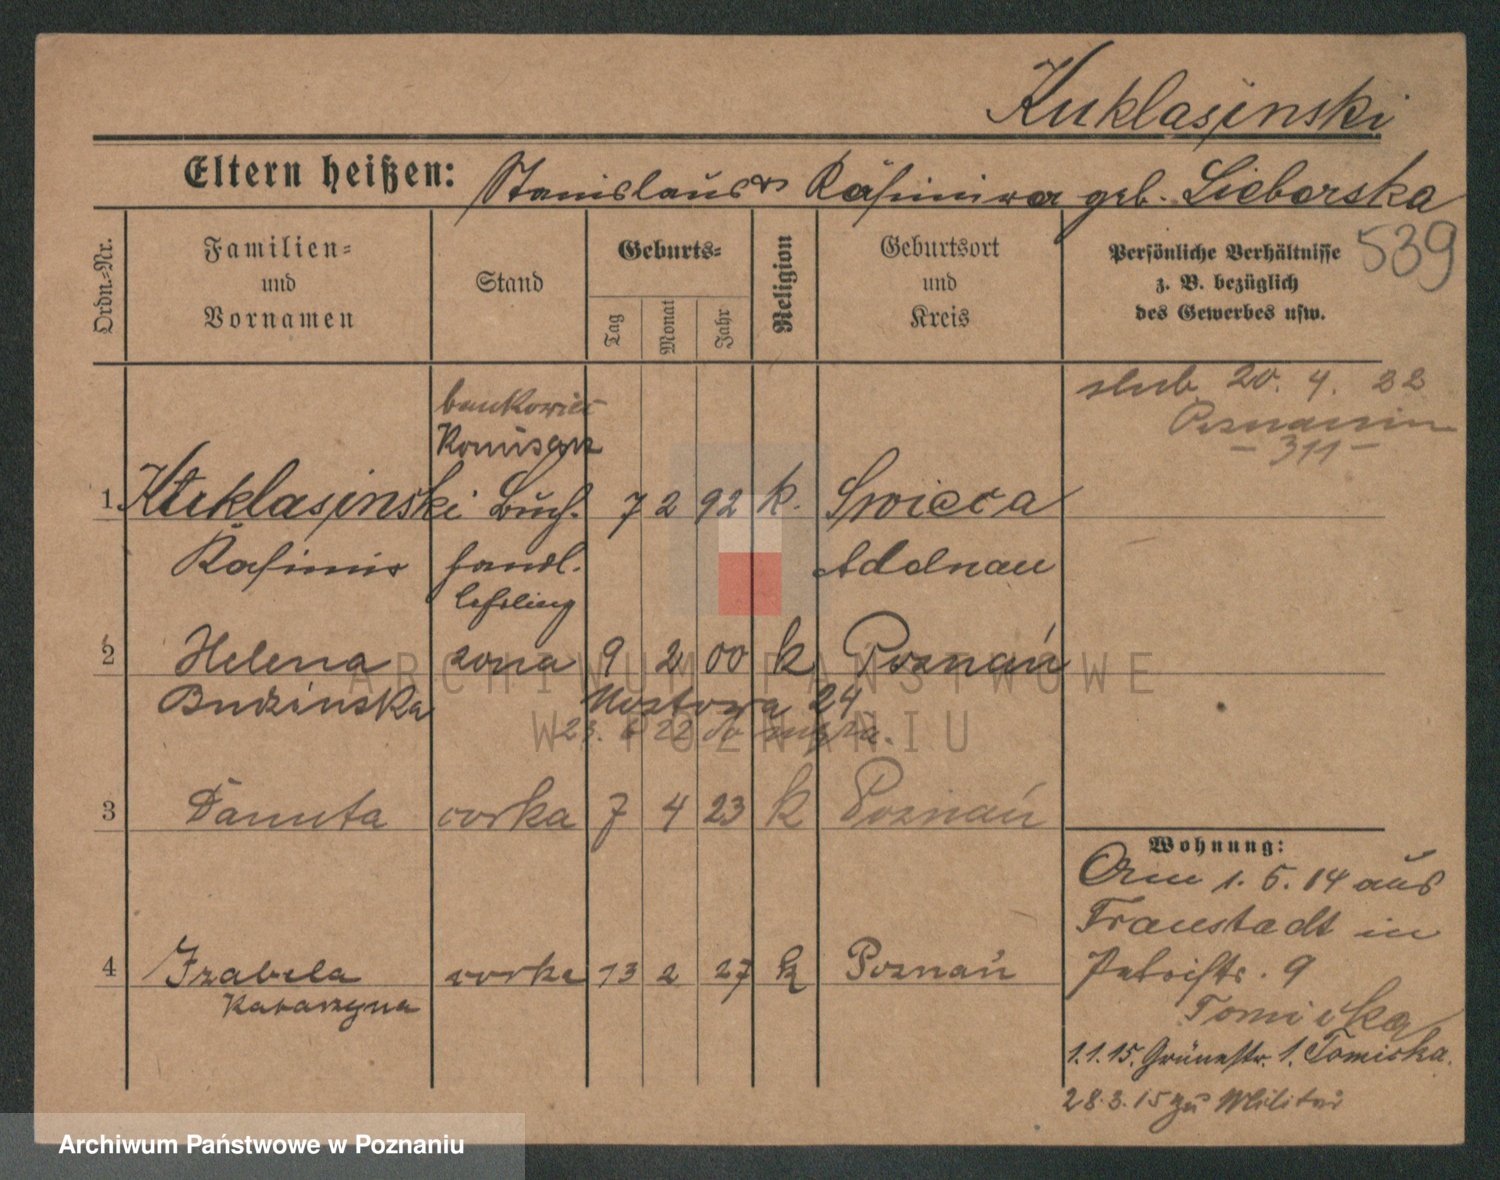 Kuklasinski
Eltern heißen: Stanislaus & Kasimira geb. Sieberska
539
Ordn.=Nr.
Familien=
und
Vornamen
Stand
Geburts=
Tag
Monat
Jahr
Religion
Geburtsort
und
Kreis
Persönliche Verhältnisse
z. B. bezüglich
des Gewerbes usw.
ślub 20. 4. 22
Poznaniu
- 311 -
bankowiec
1. Kuklasinski Buch- 7 2 92 k. Swieca
Kasimir handl. Adelnau
lehrling
2 Helena żona 9 2 00 k Poznań
Budzinska Mostowa 24
23. 6 22 do męża.
3 Danuta corka 7 4 23 k Poznań
Wohnung:
Am 1. 5. 14 aus
Fraustadt in
Petristr. 9
4 Izabela corka 13 2 27 k Poznań
Katarzyna
Tomicka
1.1.15. Grünestr. 1. Tomicka.
28.3.15 zu Militär
ARCHIWUM PAŃSTWOWE
W POZNANIU
Archiwum Państwowe w Poznaniu